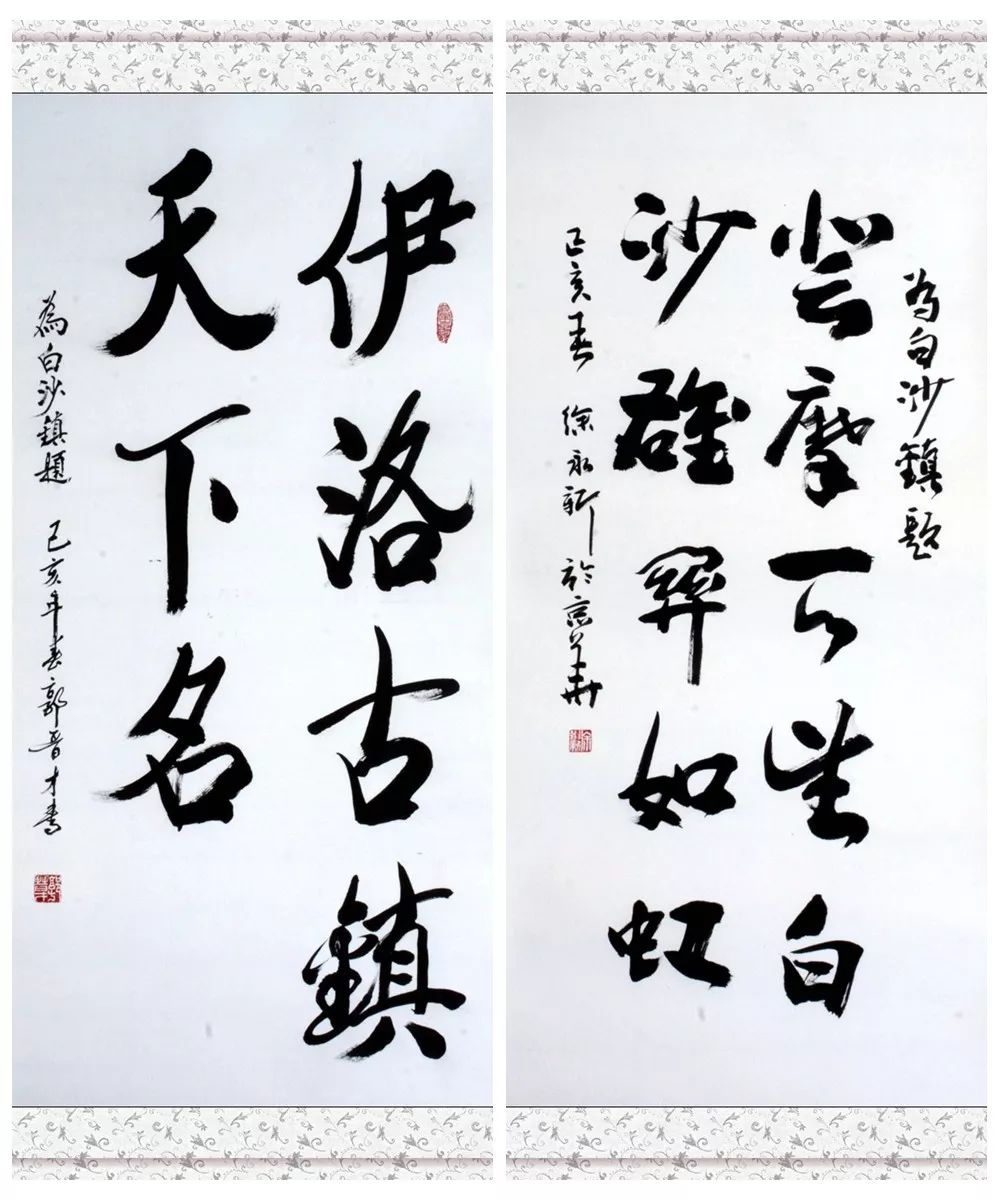 伊洛古鎮
天下名
為白沙鎮題 己亥年春郭晋才書
為白沙鎮題
登摩可望白
沙雄關如虹
己亥春 徐永新 於京華